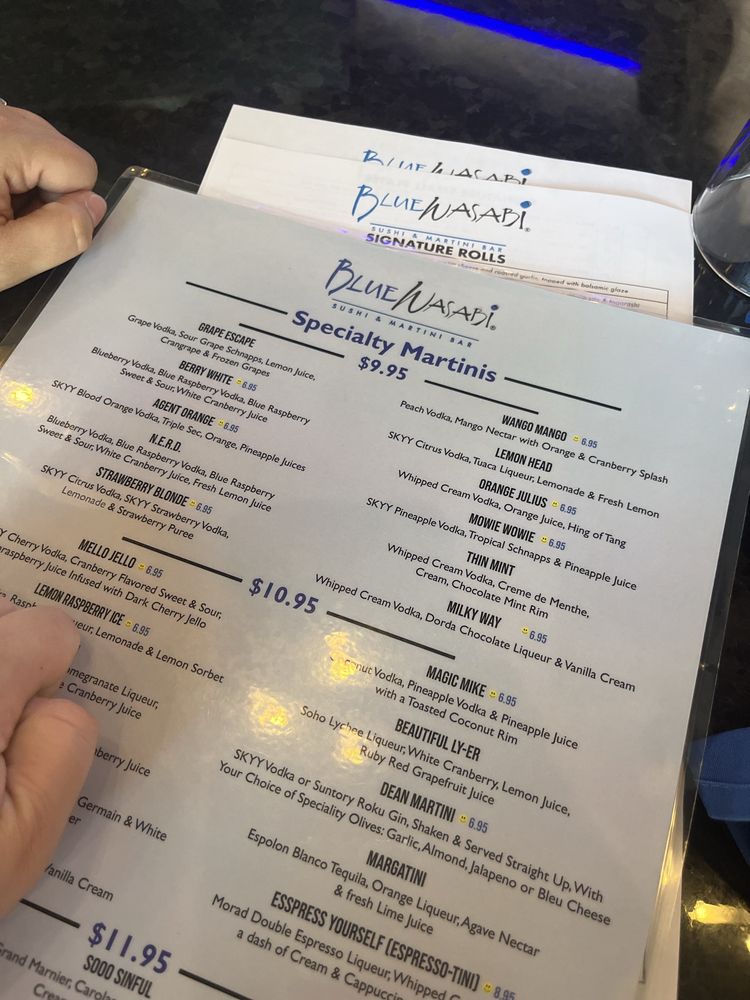 BLUE WASABI
BLUE WASABI®
SUSHI & MARTINI BAR
SIGNATURE ROLLS
cheese and roasted garlic, topped with balsamic glaze
BLUE WASABI®
SUSHI & MARTINI BAR
Specialty Martinis
$9.95
GRAPE ESCAPE
Grape Vodka, Sour Grape Schnapps, Lemon Juice,
Crangrape & Frozen Grapes
BERRY WHITE 6.95
Blueberry Vodka, Blue Raspberry Vodka, Blue Raspberry
Sweet & Sour, White Cranberry Juice
AGENT ORANGE 6.95
SKYY Blood Orange Vodka, Triple Sec, Orange, Pineapple Juices
N.E.R.D.
Blueberry Vodka, Blue Raspberry Vodka, Blue Raspberry
Sweet & Sour, White Cranberry Juice, Fresh Lemon Juice
STRAWBERRY BLONDE 6.95
SKYY Citrus Vodka, SKYY Strawberry Vodka,
Lemonade & Strawberry Puree
WANGO MANGO 6.95
Peach Vodka, Mango Nectar with Orange & Cranberry Splash
LEMON HEAD
SKYY Citrus Vodka, Tuaca Liqueur, Lemonade & Fresh Lemon
ORANGE JULIUS 6.95
Whipped Cream Vodka, Orange Juice, Hing of Tang
MOWIE WOWIE 6.95
SKYY Pineapple Vodka, Tropical Schnapps & Pineapple Juice
THIN MINT
Whipped Cream Vodka, Creme de Menthe,
Cream, Chocolate Mint Rim
MILKY WAY 6.95
Whipped Cream Vodka, Dorda Chocolate Liqueur & Vanilla Cream
$10.95
MELLO JELLO 6.95
Cherry Vodka, Cranberry Flavored Sweet & Sour,
raspberry Juice Infused with Dark Cherry Jello
LEMON RASPBERRY ICE 6.95
Lemonade & Lemon Sorbet
Liqueur,
Cranberry Juice
Juice
Germain & White
Vanilla Cream
MAGIC MIKE 6.95
Vodka, Pineapple Vodka & Pineapple Juice
with a Toasted Coconut Rim
BEAUTIFUL LY-ER
Soho Lychee Liqueur, White Cranberry, Lemon Juice,
Ruby Red Grapefruit Juice
DEAN MARTINI 6.95
SKYY Vodka or Suntory Roku Gin, Shaken & Served Straight Up, With
Your Choice of Speciality Olives: Garlic, Almond, Jalapeno or Bleu Cheese
MARGATINI
Espolon Blanco Tequila, Orange Liqueur, Agave Nectar
& fresh Lime Juice
ESSPRESS YOURSELF (ESPRESSO-TINI) 8.95
Morad Double Espresso Liqueur, Whipped
a dash of Cream &
$11.95
SOOO SINFUL
Grand Marnier,